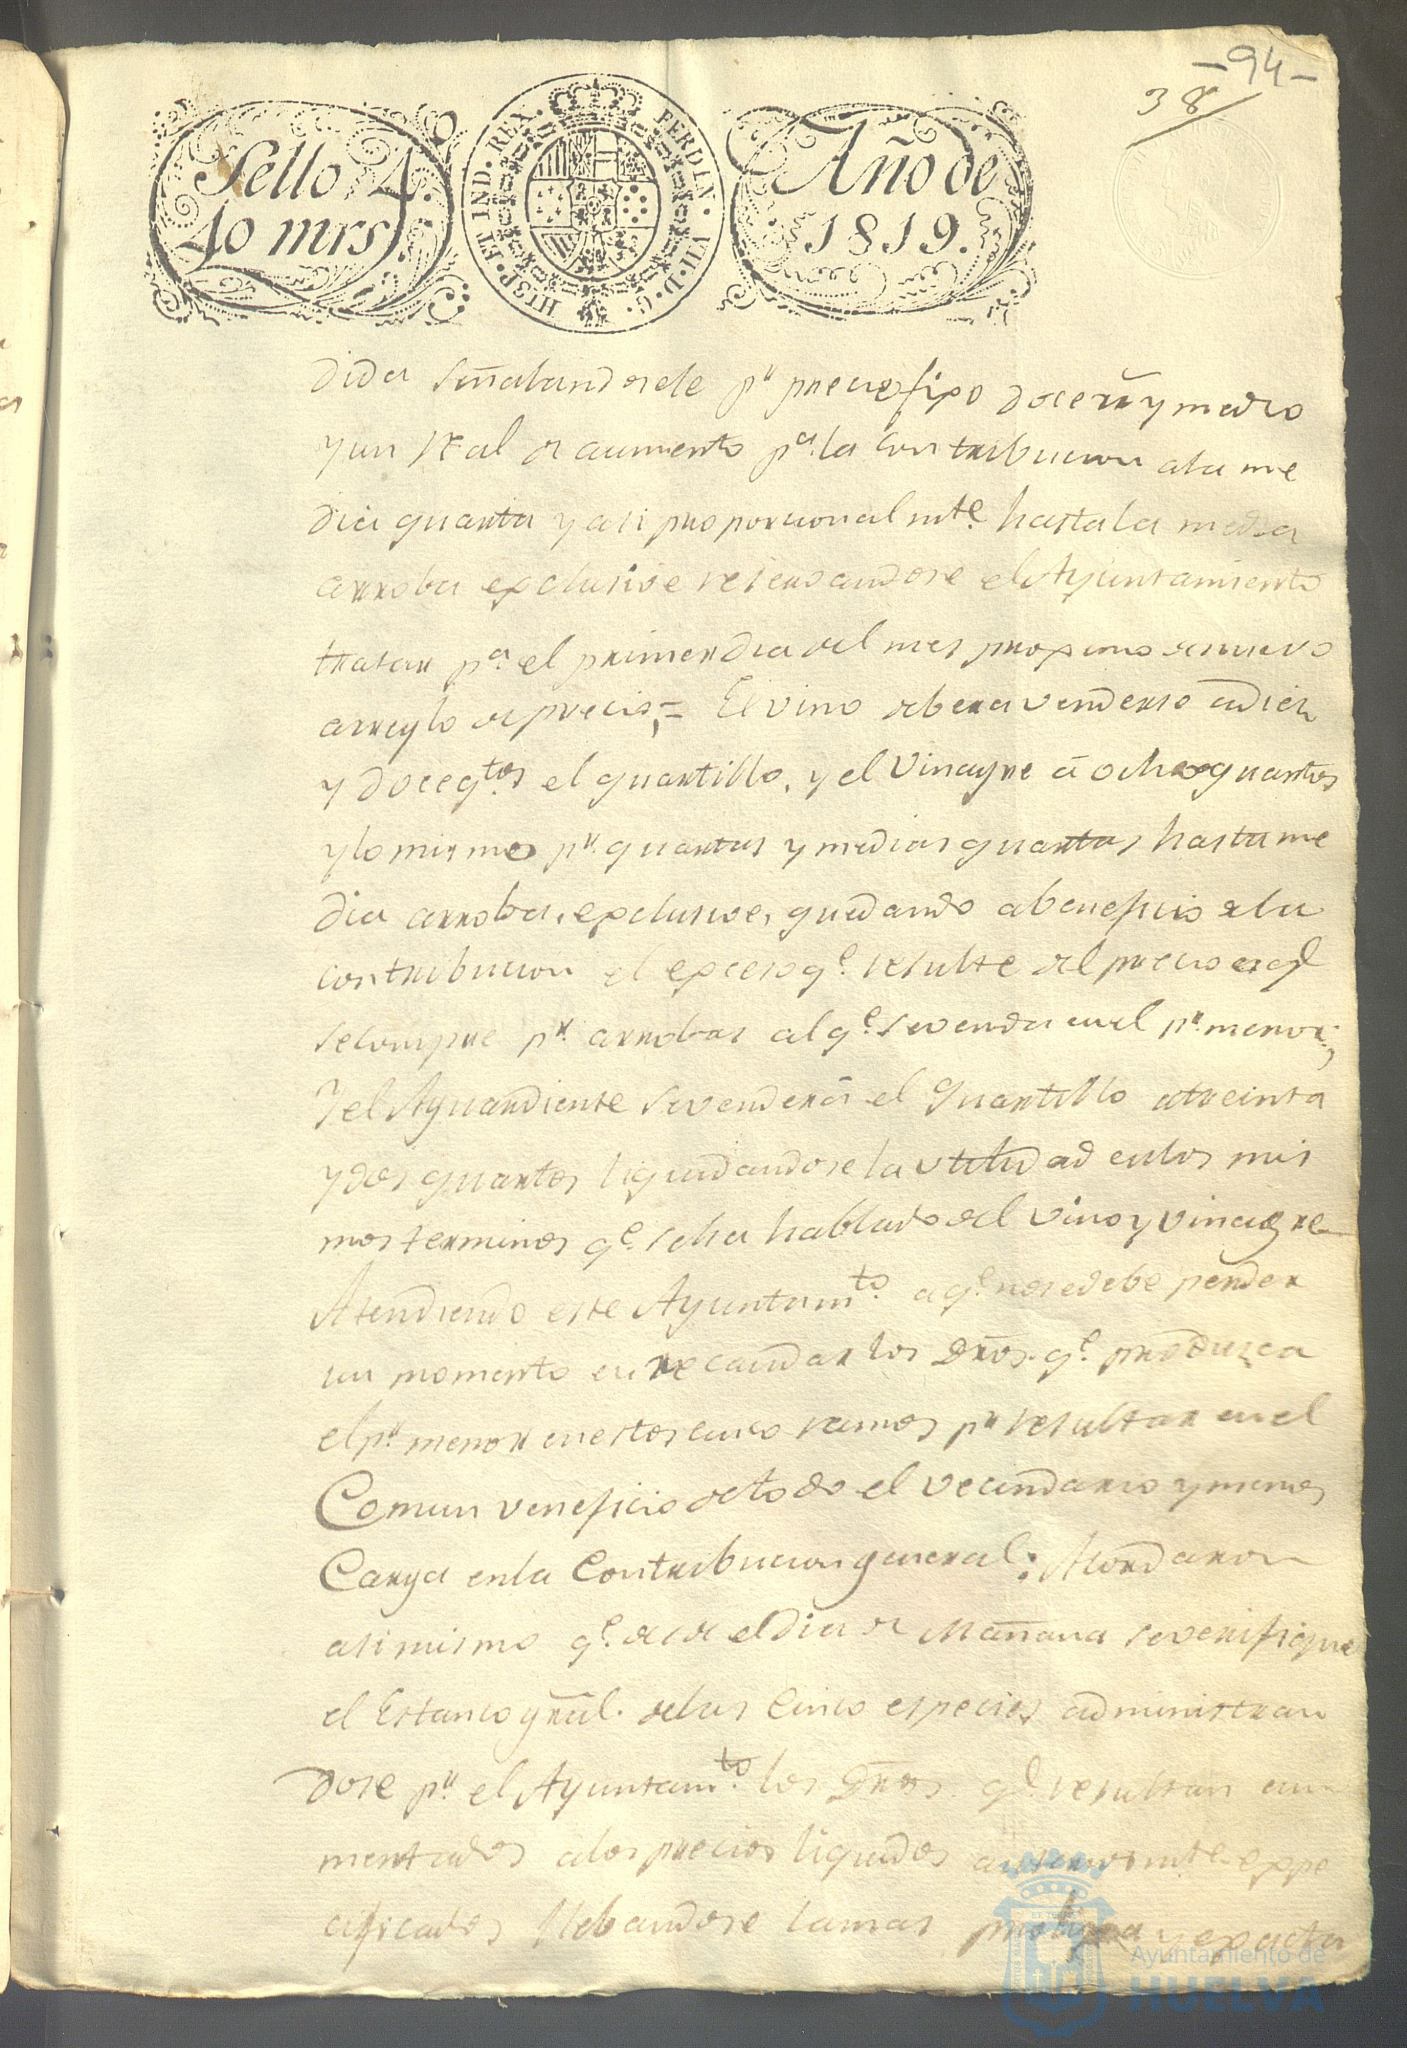 - 94 -
38
Sello 4.
40 mrs.
HISP. ET IND. REX. FERDIN. VII. D. G.
Año de
1819.
dida señalandosele pr. precio fixo doce rrs. y medio
y un Real de aumento pa. la contribucion a la me
dia quarta y asi proporcionalmte. hasta la media
arroba exclusive reservandose el Ayuntamiento
tratar pa. el primer dia del mes proximo de nuevo
arreglo de precio = El vino debera venderse a diez
y doce qtos. el quartillo, y el Vinagre á ocho quartos
y lo mismo pr. quartas y medias quartas hasta me
dia arroba, exclusive, quedando a beneficio de la
contribucion el exceso qe. resulte del precio en qe.
se compre pr. arrobas al qe. se venda en el pr. menor;
Y el Aguardiente se venderá el quartillo a treinta
y dos quartos liquidandose la utilidad en los mis
mos terminos qe. se ha hablado del vino y vinagre
Atendiendo este Ayuntamto. a qe. no se debe perder
un momento en recaudar los Dros. qe. produzca
el pr. menor en estos cinco ramos pr. resultar en el
Comun veneficio de todo el vecindario y menos
Carga en la Contribucion general: Acordaron
asimismo qe. desde el dia de Mañana se verifique
el Estanco gral. de las Cinco especies administran
dose pr. el Ayuntamto. los Dros qe. resultan au
mentados a los precios liquidos anteriormte. expe
cificados llebandose la mas prolixa y exacta
Ayuntamiento de
HUELVA